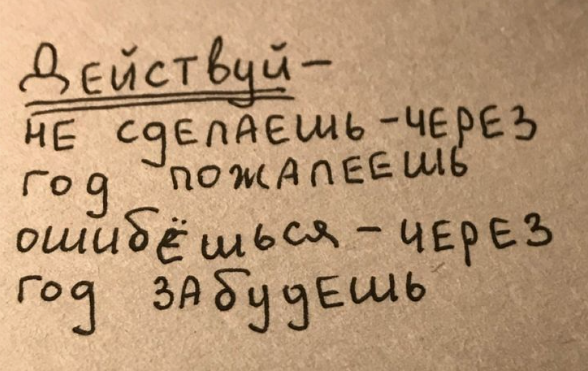 Действуй -
НЕ СДЕЛАЕШЬ - ЧЕРЕЗ
ГОД ПОЖАЛЕЕШЬ
ОШИБЁШЬСЯ - ЧЕРЕЗ
ГОД ЗАБУДЕШЬ